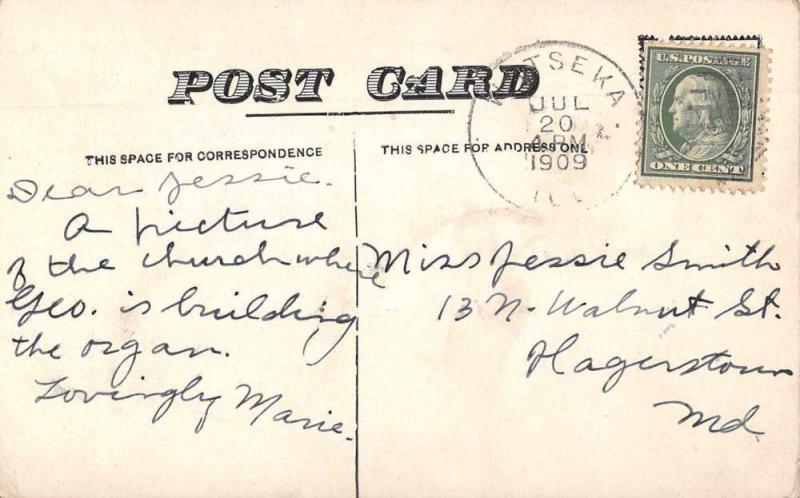 POST CARD
THIS SPACE FOR CORRESPONDENCE
Dear Jessie.
A picture
of the church where
Geo. is building
the organ.
Lovingly Marie.
THIS SPACE FOR ADDRESS ONL
Miss Jessie Smith
13 N. Walnut St.
Hagerstown
Md
TSEKA
JUL
20
1909
ILL
U.S. POSTAGE
ONE CENT